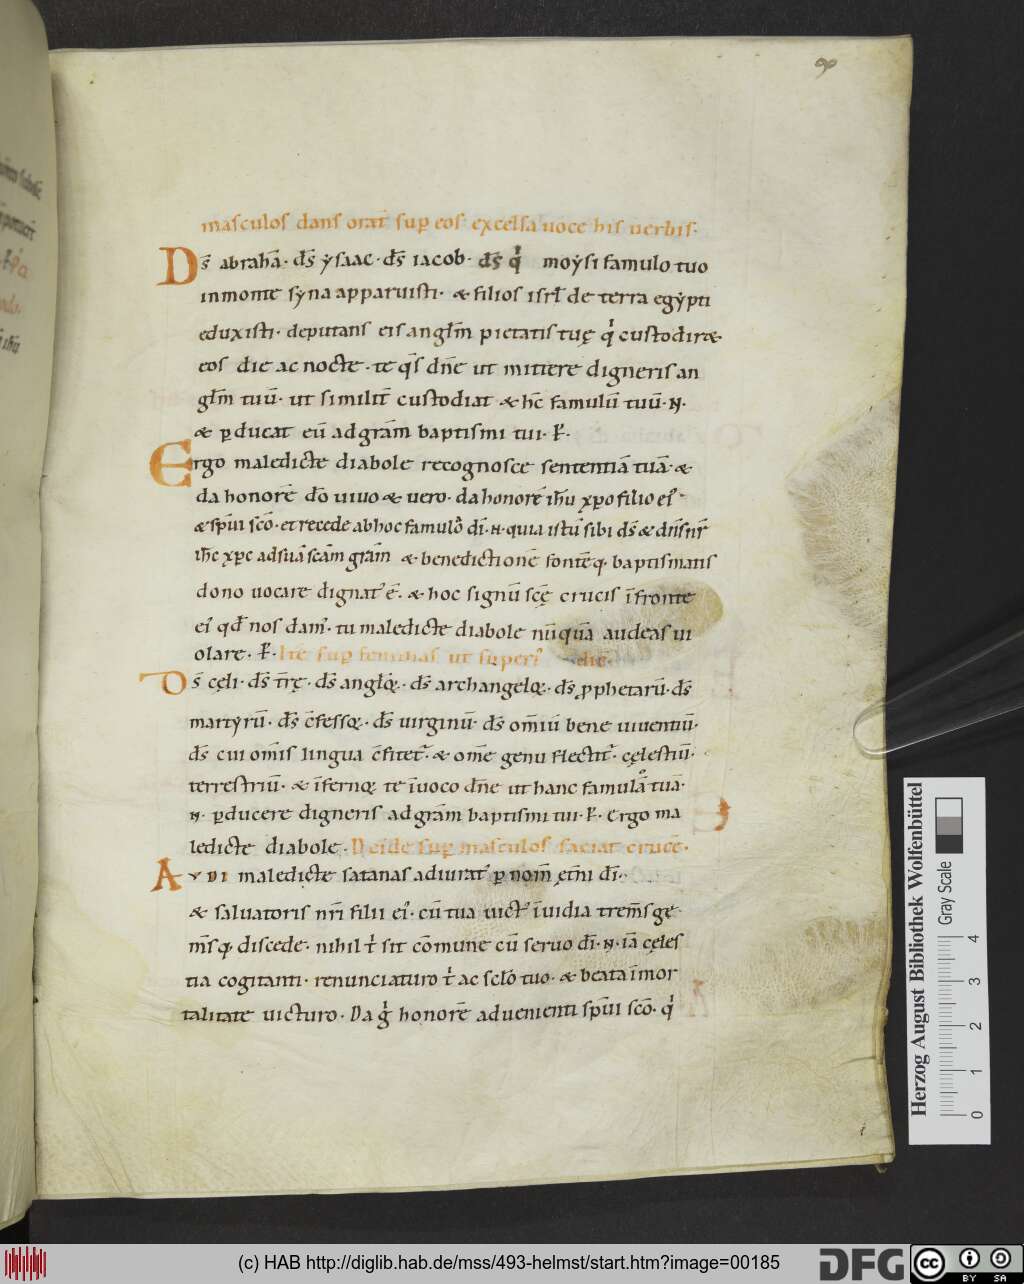 90
masculos dans orat̄ sup̲ eos excelsa uoce his uerbis·
Ds̄ abrahā· ds̄ ẏsaac· ds̄ iacob· ds̄ qͥ moẏsi famulo tuo
in monte sẏna apparuisti· & filios isrl̄ de terra egẏpti
eduxisti· deputans eis anglm̄ pietatis tuę qͥ custodir&
eos die ac nocte· te qs̄ dn̄e ut mittere digneris an
glm̄ tuū· ut similit̄ custodiat & hc̄ famulū tuū· N·
& p̲ducat eū ad grām baptismi tui· P̲·
Ergo maledicte diabole recognosce sententiā tuā· &
da honorē dō uiuo & uero· da honorē ih̄u xp̄o filio ei᾽·
& sp̄ui scō· et recede ab hoc famulo dī· N· quia istū sibi ds̄ & dn̄s nr̄
ih̄c xp̄c ad suā scām grām & benedictionē fontēq· baptismatis
dono uocare dignat᾽ ē· & hoc signū scę̄ crucis ī fronte
ei᾽ qd̄ nos dam᾽· tu maledicte diabole nūquā audeas ui
olare· P̲· Itē sup̲ feminas ut superi᾽ dic̄·
Ds̄ cęli· ds̄ tr̄ę· ds̄ anglꝝ· ds̄ archangelꝝ· ds̄ p̲phetarū· ds̄
martyrū· ds̄ c̄fessꝝ· ds̄ uirginū· ds̄ om̄iū bene uiuentiū·
ds̄ cui om̄is lingua c̄fitet᾽· & om̄e genu flectit᾽· cęlestiū·
terrestriū· & īfernꝝ te īuoco dn̄e ut hanc famulā tuā·
N· p̲ducere digneris ad grām baptismi tui· P̲· Ergo ma
ledicte diabole· Deide sup̲ masculos faciat crucē·
AVDI maledicte satanas adiurat᾽ p̲ nom̄ et̄ni dī·
& saluatoris nr̄i filii ei᾽· cū tua uict᾽ īuidia trem̄s ge
m̄sq· discede· nihil t̄ sit cōmune cū seruo dī· N· iā cęles
tia cogitanti· renunciaturo t̄ ac sclō tuo· & beata īmor
talitate uicturo· Da gͥ honorē aduenienti sp̄ui scō· qͥ
Herzog August Bibliothek Wolfenbüttel
Gray Scale
0 1 2 3 4
(c) HAB http://diglib.hab.de/mss/493-helmst/start.htm?image=00185
DFG
cc BY SA